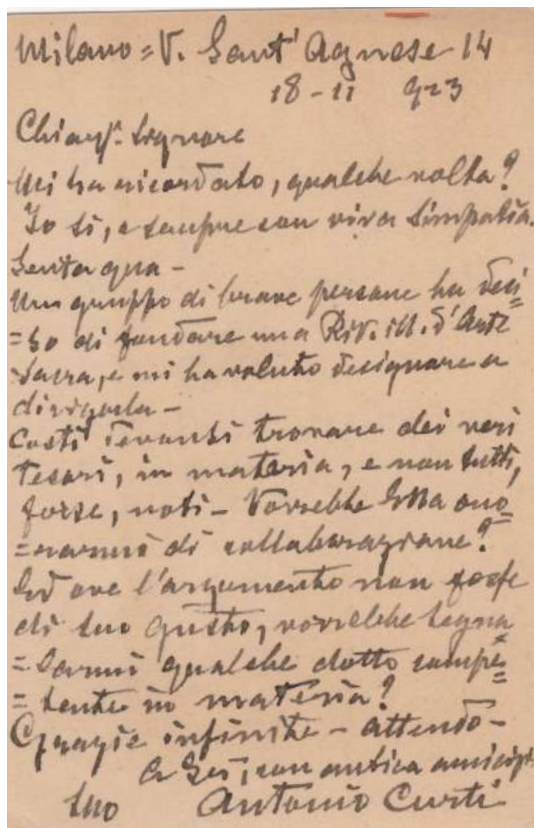 Milano = V. Sant' Agnese 14
18-11 923
Chiarmo Signore
Mi ha ricordato, qualche volta?
Io sì, e sempre con viva simpatia.
Senta qua -
Un gruppo di brave persone ha deci=
=so di fondare una Riv. ill. d'Arte
Sacra, e mi ha voluto designare a
dirigerla -
Costì devonsi trovare dei veri
tesori, in materia, e non tutti,
forse, noti - Vorrebbe Ella ono=
=rarmi di collaborazione?
Ed ove l'argomento non fosse
di suo gusto, vorrebbe segna=
=larmi qualche dotto compe=
=tente in materia?
Grazie infinite - attendo -
con antica amicizia
suo Antonio Curti